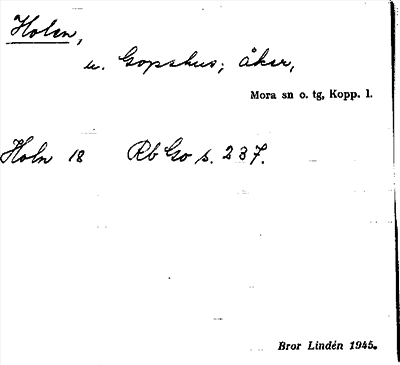 Holen,
u. Gopshus; åker,
Mora sn o. tg, Kopp. l.
Holn 18 Rb Go s. 237.
Bror Lindén 1945.